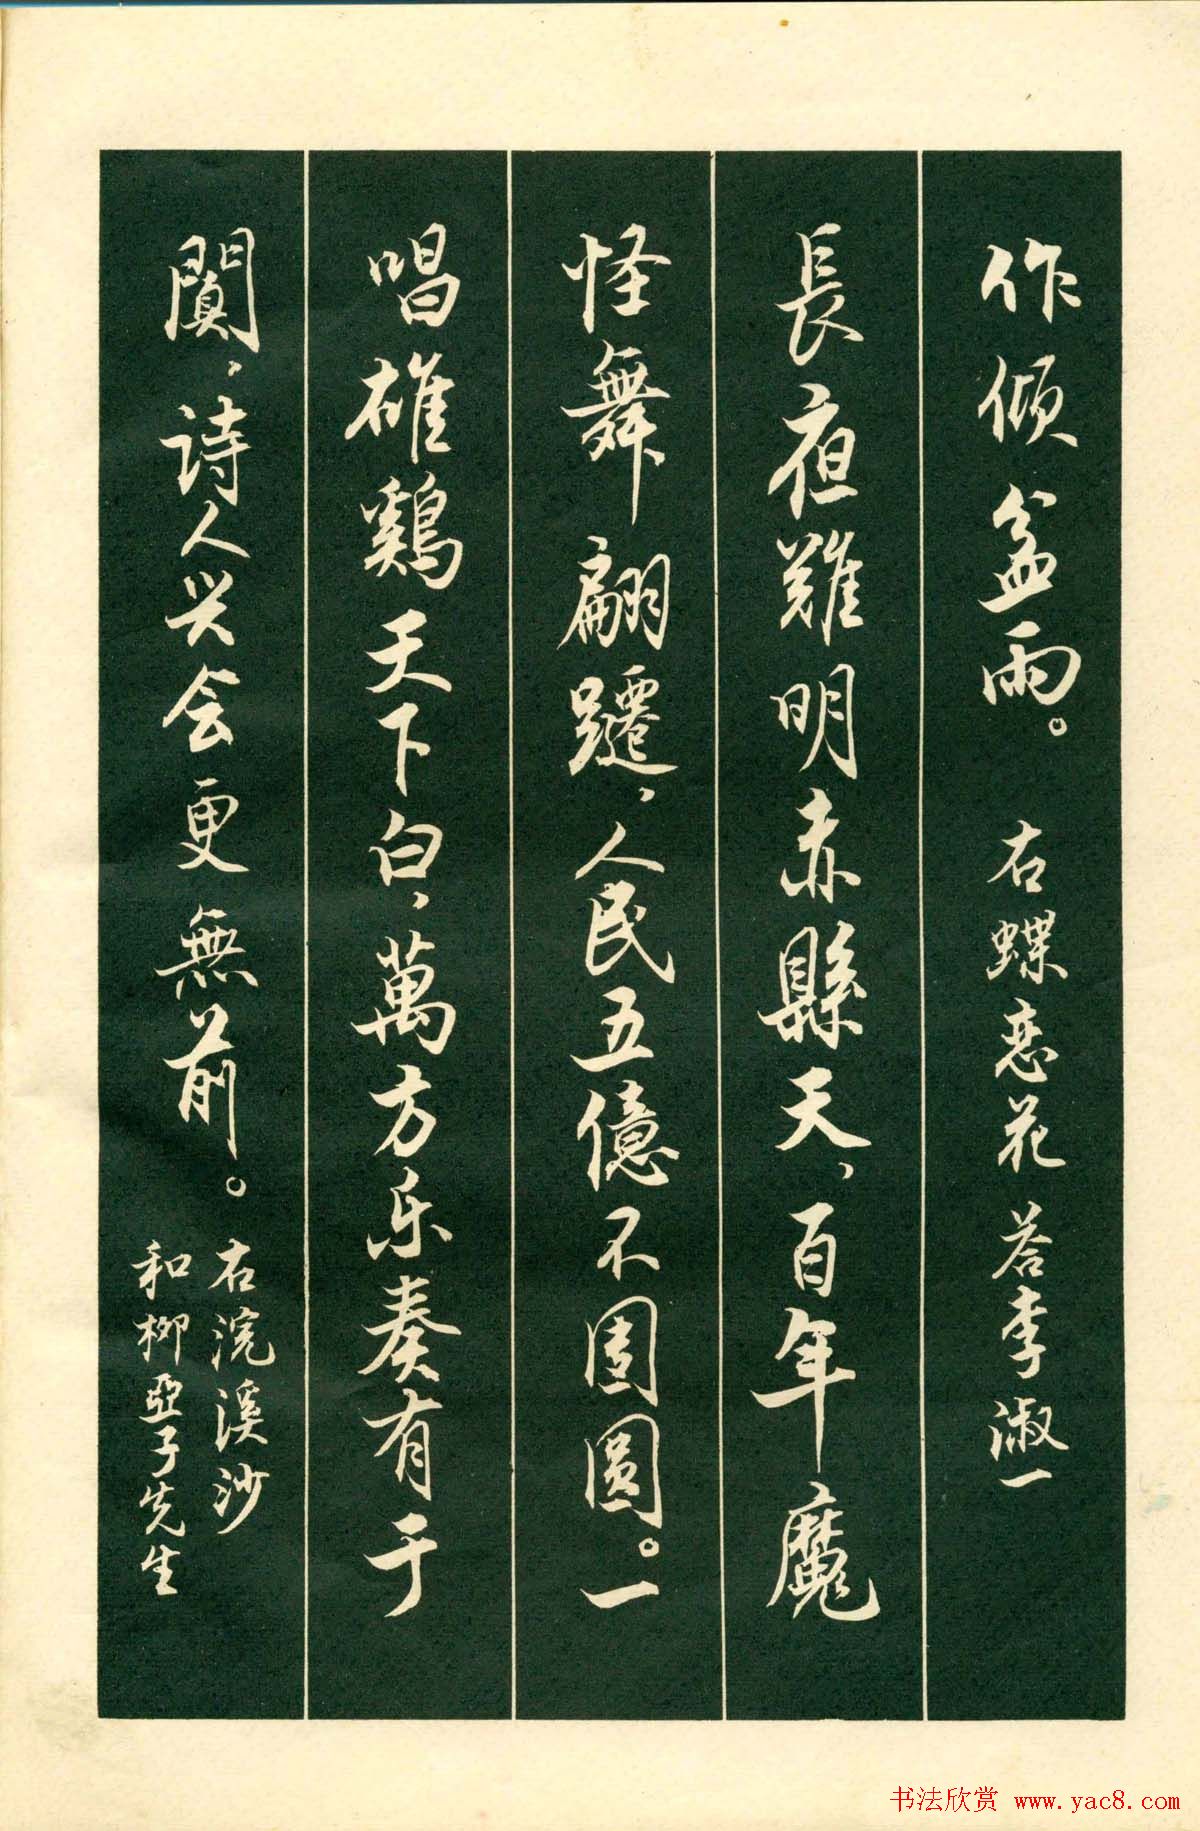 作倾盆雨。 右蝶恋花答李淑一
長夜難明赤縣天、百年魔
怪舞翩躚、人民五億不團圓。一
唱雄鷄天下白、萬方乐奏有于
闐、诗人兴会更無前。
右浣溪沙
和柳亞子先生
书法欣赏 www.yac8.com